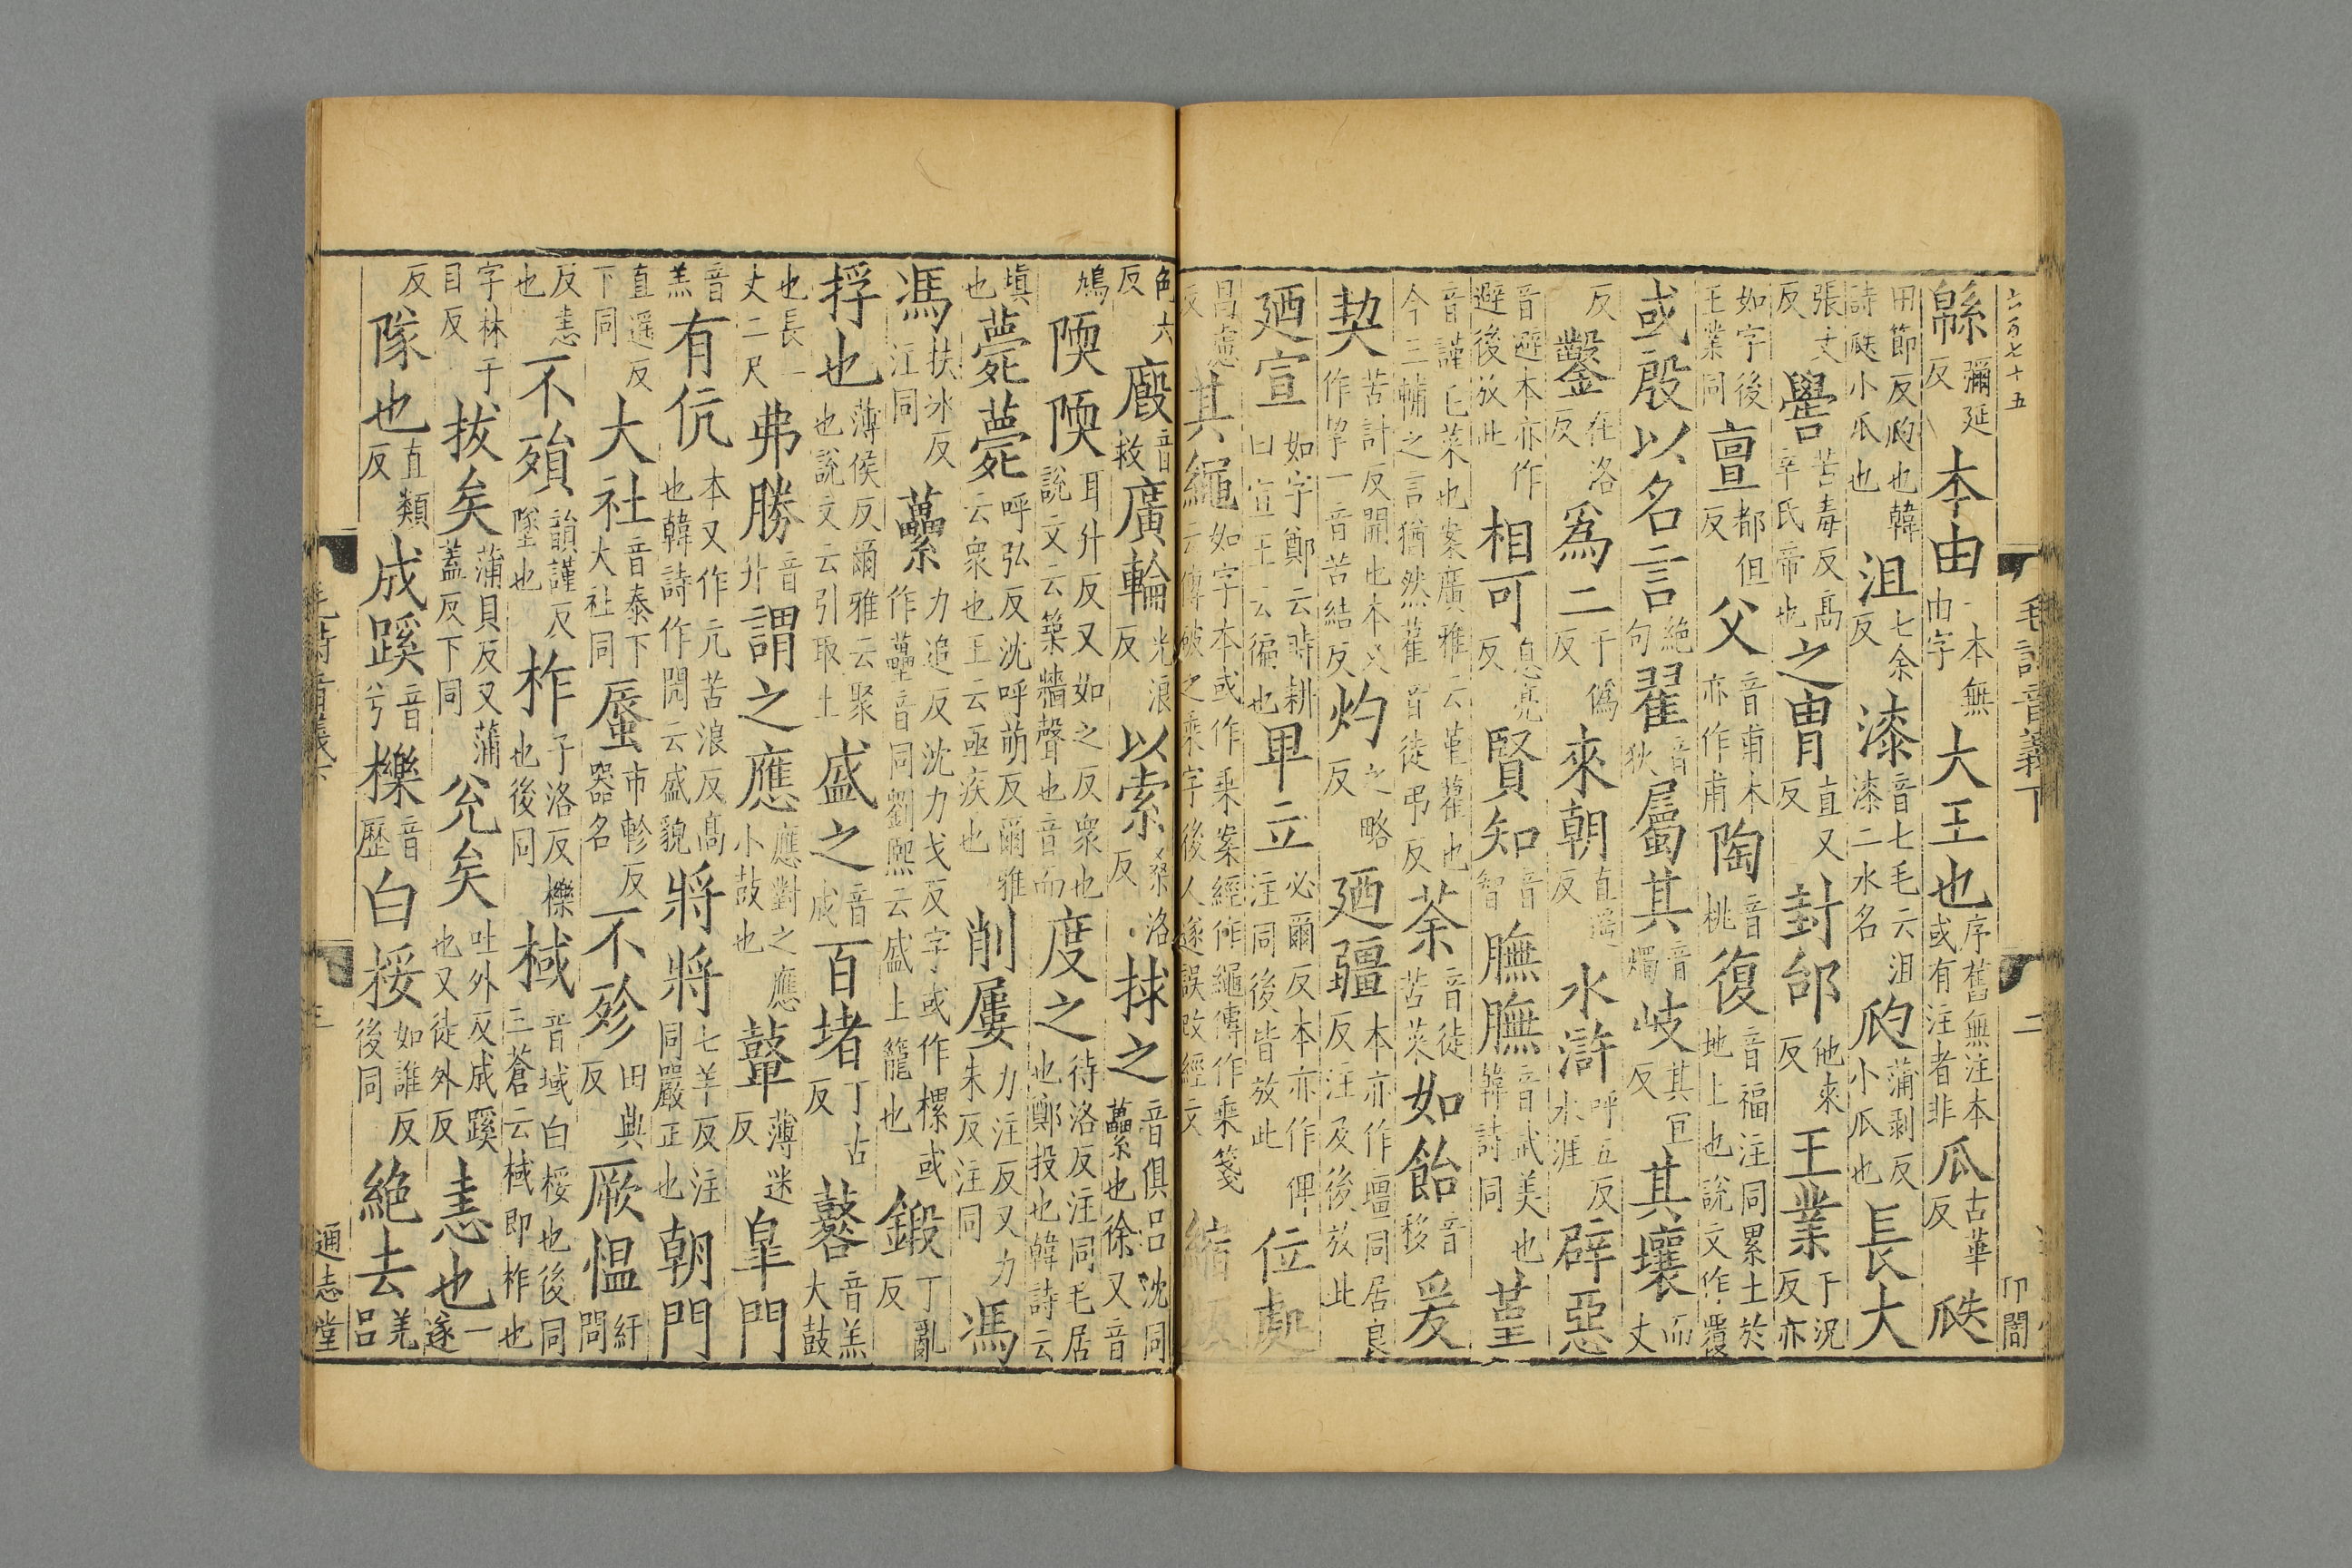 六百七十五
毛詩音義下 二
緜彌延反本由一本無由字大王也序舊無注本或有注者非瓜古華反瓞
田節反瓝也韓詩瓞小瓜也沮七余反漆音七毛云沮漆二水名瓝蒲剥反小瓜也長大
張丈反嚳苦毒反高辛氏帝也之胄直又反封邰他來反王業于況反亦
如字後王業同亶都但反父音甫本亦作甫陶音桃復音福注同累土於地上也說文作
或殷以名言絶句翟音狄屬其音燭岐其宜反其壤而丈
反鑿在洛反爲二于僞反來朝直遥反水滸呼五反水涯辟惡
音避本亦作避後放此相可息亮反賢知音智膴膴音武美也韓詩同堇
音謹菜也案廣雅云堇藋也今三輔之言猶然藋音徒弔反荼音徒苦菜如飴音移爰
契苦計反開也本又作挈一音苦結反灼之略反廼疆本亦作壃同居良反注及後放此
廼宣如字鄭云時耕曰宣王云徧也卑立必爾反本亦作俾注同後皆放此位處
昌慮反其繩如字本或作乘案經作繩傳作乘箋云傳破之乘字後人遂誤改經文縮版
色六反廄音救廣輪光浪反以索桑洛反捄之音俱呂沈同虆也徐又音
鳩陾陾耳升反又如之反衆也說文云築牆聲也音而度之待洛反注同毛居也鄭投也韓詩云
塡也薨薨呼弘反沈呼萌反爾雅云衆也王云亟疾也削屢力注反又力朱反注同馮
馮扶冰反注同虆力追反沈力戈反字或作樏或作蘽音同劉熙云盛土籠也鍛丁亂反
捊也薄侯反爾雅云聚也說文云引取土盛之音成百堵丁古反鼛音羔大鼓
也長一丈二尺弗勝音升謂之應應對之應小鼓也鼙薄迷反皐門
音羔有伉本又作亢苦浪反高也韓詩作閌云盛貌將將七羊反注同嚴正也朝門
直遥反下同大社音泰下大社同蜃市軫反器名不殄田典反厥愠紆問
反恚也不殞韻謹反墜也柞子洛反櫟也後同棫音域白桵也後同三蒼云棫即柞也
字林于目反拔矣蒲貝反又蒲蓋反下同兊矣吐外反成蹊也又徒外反恚也一遂
反隊也直類反成蹊音兮櫟音歷白桵如誰反後同絶去羌呂
毛詩音義下 三 通志堂